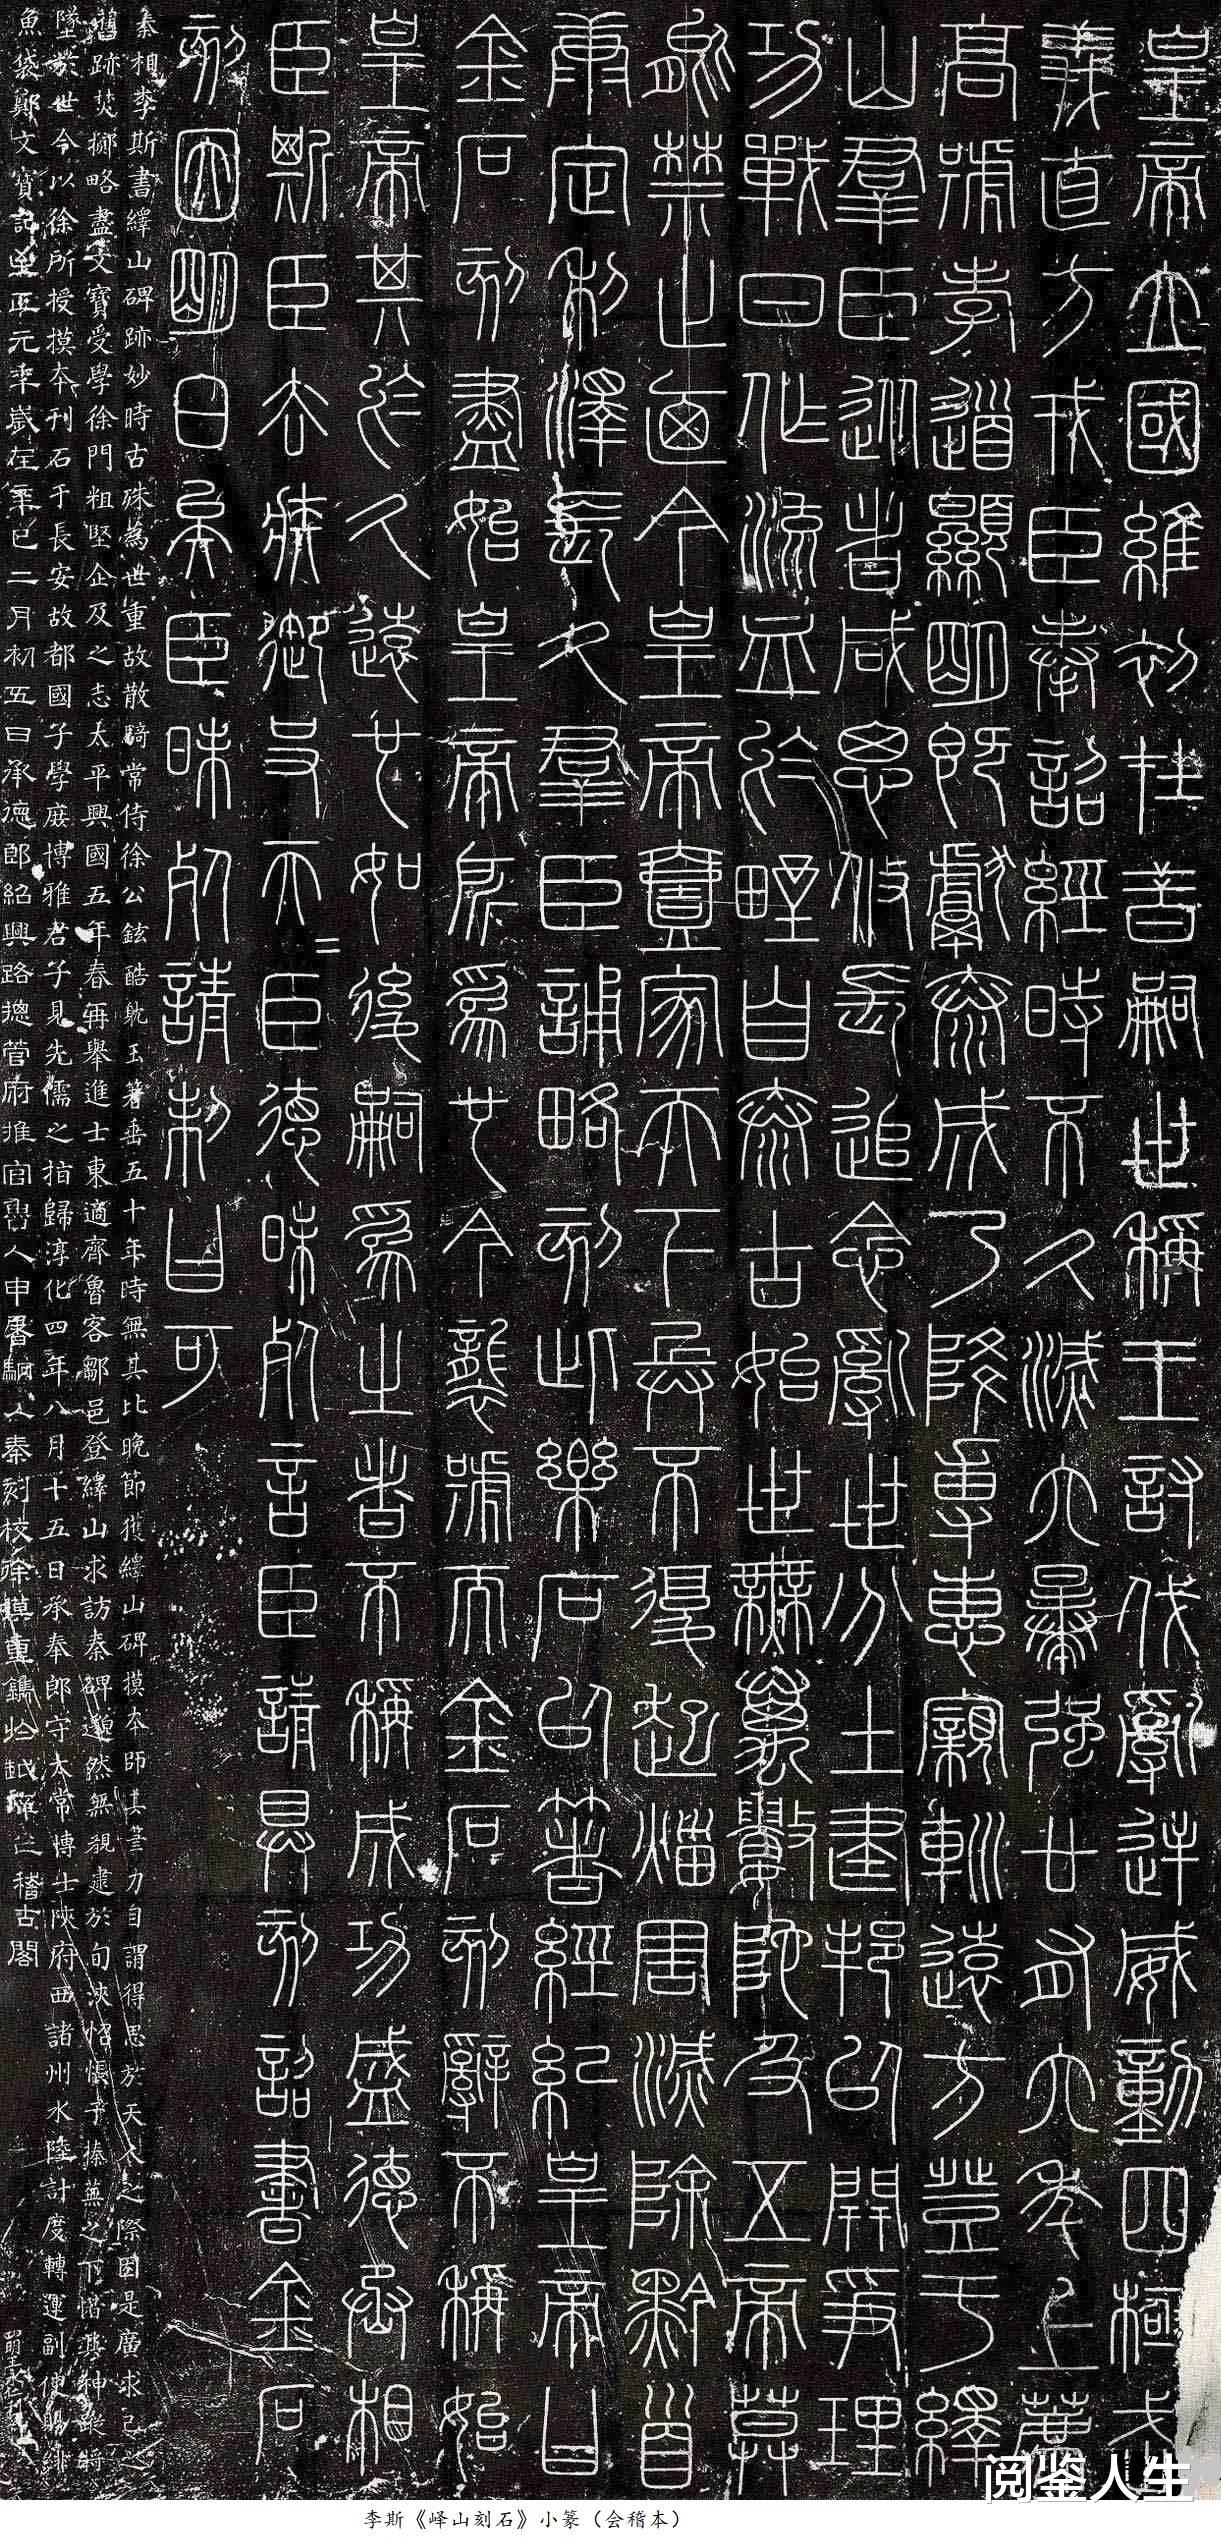 皇帝立國維初在昔嗣世稱王討伐亂逆威動四極武
義直方戎臣奉詔經時不久滅六暴強廿有六年上薦
高號孝道顯明既獻泰成乃降專惠親巡遠方登于繹
山群臣從者咸思攸長追念亂世分土建邦以開爭理
功戰日作流血於野自泰古始世無萬數陀及五帝莫
能禁止迺今皇帝壹家天下兵不復起災害滅除黔首
康定利澤長久群臣誦略刻此樂石以著經紀皇帝曰
金石刻盡始皇帝所為也今襲號而金石刻辭不稱始
皇帝其於久遠也如後嗣為之者不稱成功盛德丞相
臣斯臣去疾御史夫=臣德昧死言臣請具刻詔書金石
刻因明白矣臣昧死請制曰可
秦相李斯書繹山碑跡妙時古殊為世重故散騎常侍徐公鉉酷躭玉著垂五十年時無其比晚節獲繹山碑摸本師其筆力自謂得思於天人之際因是廣求己之
舊跡焚擲略盡文寶受學徐門粗堅企及之志太平興國五年春再舉進士東適齊魯客鄒邑登繹山求訪秦碑邈然無覩逮於旬浹怊悵于榛蕪之下惜其神蹤將
墜於世今以徐所授摸本刊石于長安故都國子學庶博雅君子見先儒之指歸淳化四年八月十五日承奉郎守太常博士陝府西諸州水陸計度轉運副使賜緋
魚袋鄭文寶記至正元年歲在辛巳二月初五日承德郎紹興路總管府推官曹人申屠駉以秦刻校徐模重鐫于越庠之稽古閣
阅鉴人生
李斯《峄山刻石》小篆（会稽本）